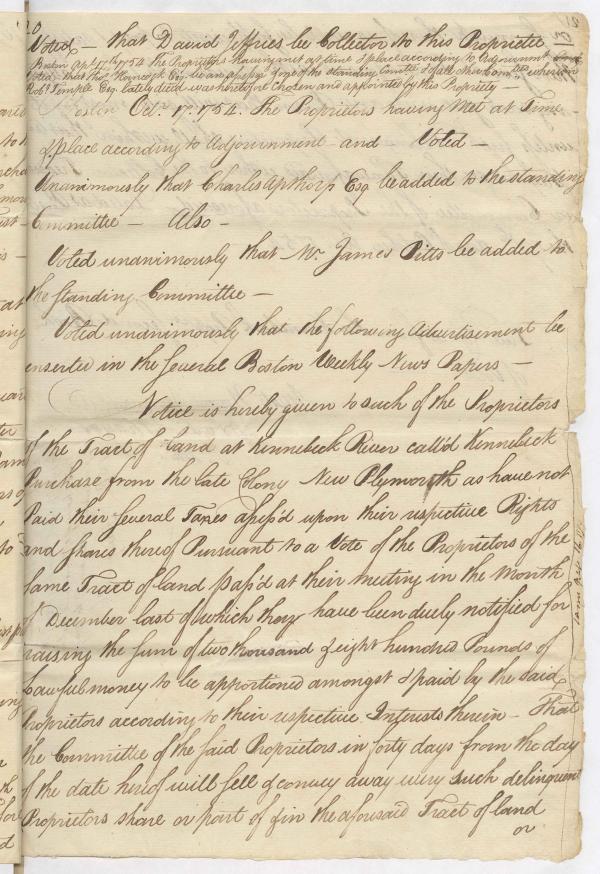 20
Voted — that David Jeffries be Collector to this Propriette
Boston Apl. 17th 1754 The Proprietors having met at time & place according to Adjournment And
Voted, that Thos. Hancock Esq. be an of the standing Comtee
Robt. Temple Esq. lately died was therefore chosen and appointed by this Propriety —
Boston Octr. 17. 1754. The Proprietors having Met at Time
& place according to Adjournment and Voted —
Unanimously that Charles Apthorp Esq be added to the standing
Committee — Also —
Voted unanimously that Mr. James Pitts be added to
the standing Committee —
Voted unanimously that the following Advertisement be
enserted in the several Boston Weekly News Papers —
Notice is hereby given to such of the Proprietors
of the Tract of land at Kennebeck River call'd Kennebeck
Purchase from the late Colony New Plymouth as have not
Paid their several Taxes assess'd upon their respective Rights
and Shares thereof Pursuant to a Vote of the Proprietors of the
same Tract of land pass'd at their meeting in the Month
of December last of which they have been duely notified for
raising the sum of two thousand & eight hundred Pounds of
Lawful money to be apportioned amongst & paid by the said
Proprietors according to their respective Interests therein — That
the Committee of the said Proprietors in forty days from the day
of the date hereof will sell & convey away every such delinquent
Proprietors share or part of & in the aforesaid Tract of land
or